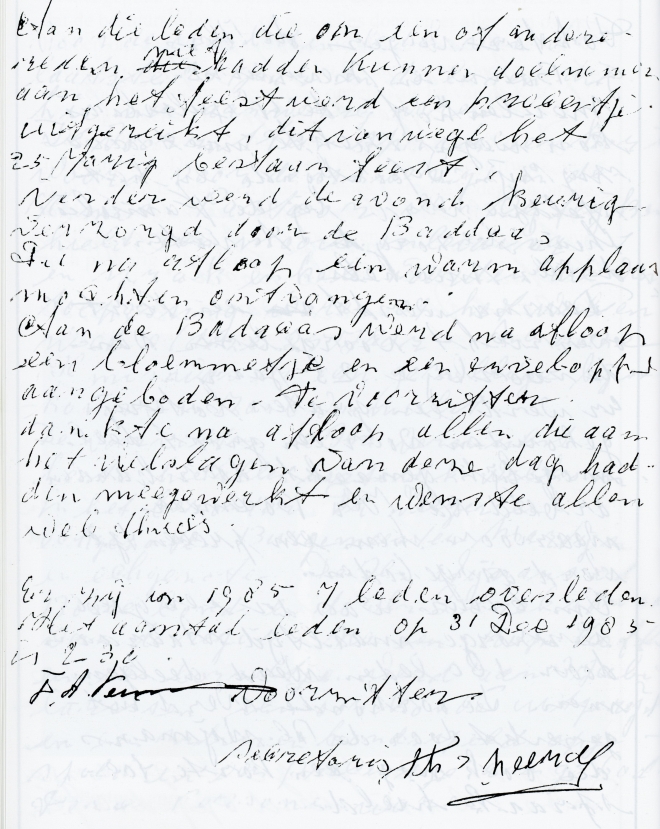 Aan die leden die om een of andere
reden niet hadden kunnen deelnemen
aan het feest werd een presentje
uitgereikt, dit vanwege het
25 Jarig bestaan feest.
Verder werd de avond keurig
verzorgd door de Baddaas
Die na afloop een warm applaus
mochten ontvangen.
Aan de Badaaas werd na afloop
een bloemmetje en een enveloppe
aangeboden. De voorzitter
dankte na afloop allen die aan
het welslagen van deze dag had-
den meegewerkt en wenste allen
wel thuis.
Er zijn in 1985 7 leden overleden.
Het aantal leden op 31 Dec 1985
is 232.
Voorzitter.
Secretaris Th